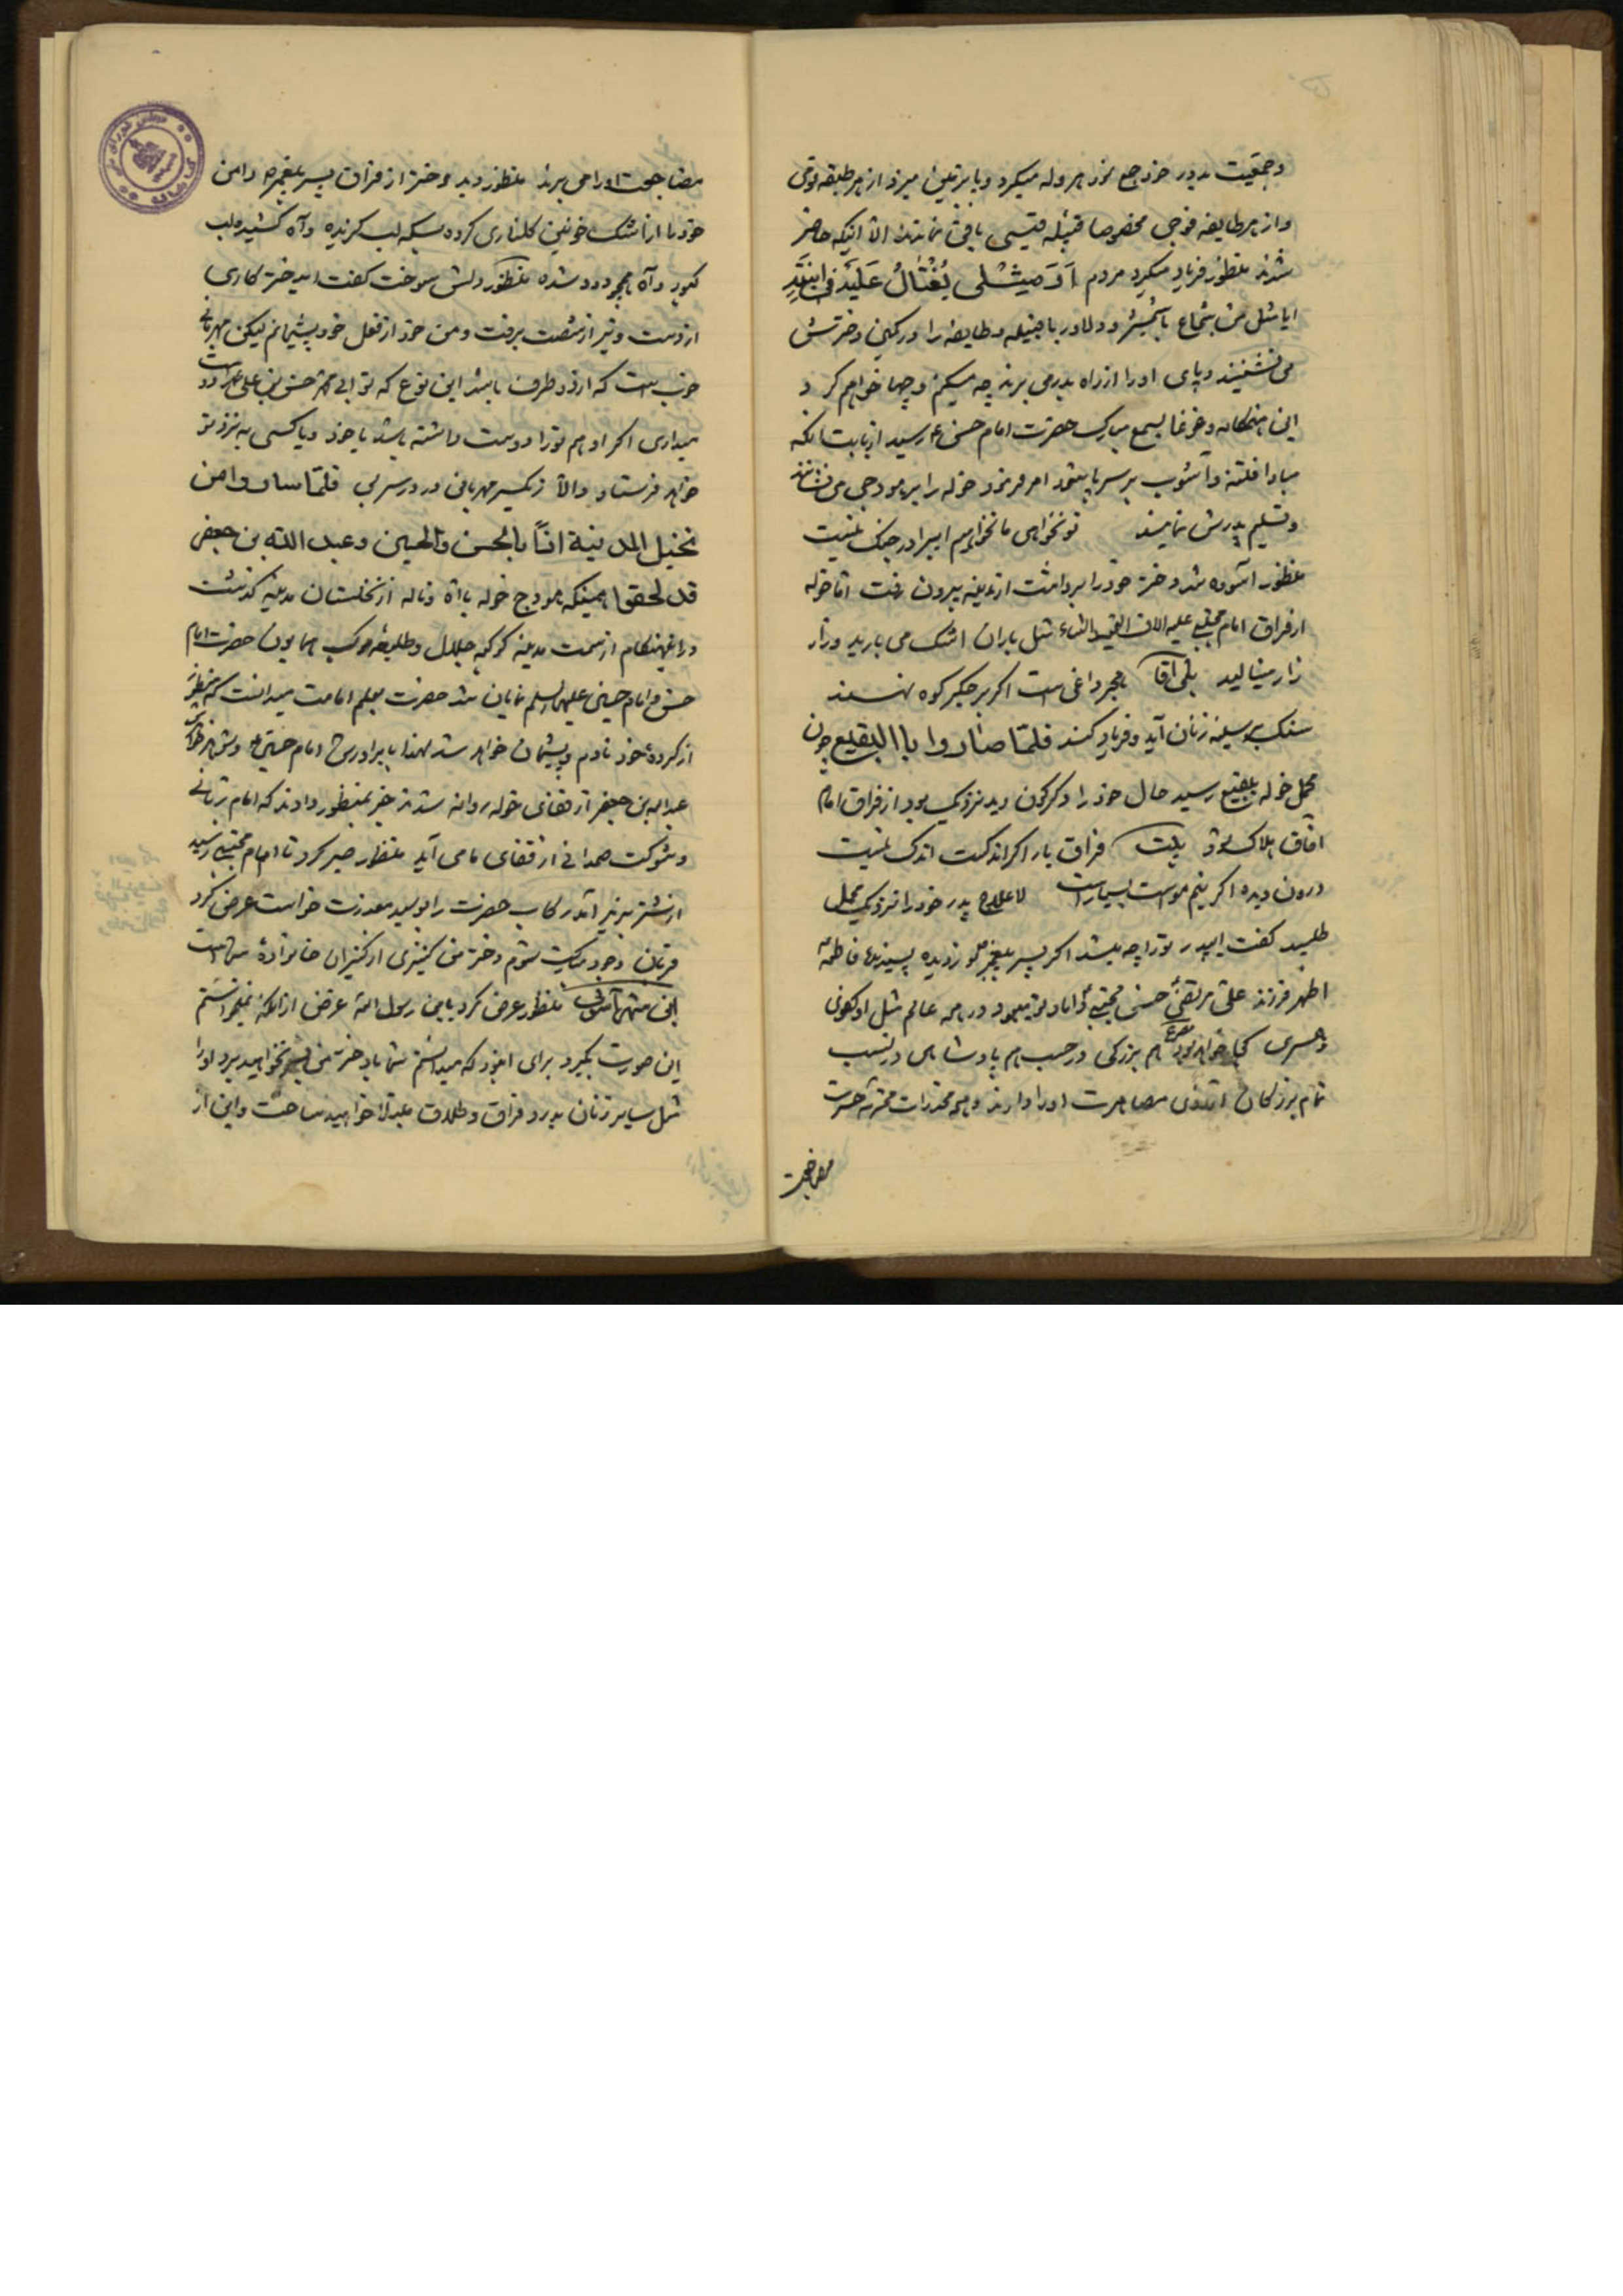 وجمعیت بدور خود جمع نمود هروله میکرد و یا میزد از هر طبقه
واز هر طایفه فوجی مخصوصا قبیله قیسی باقی نماندند الا اینکه حاضر
شدند منظور فریاد میکرد مردم
ایا مثل من شجاع باشمشیر و دلاور با قبیله و طایفه را در کمین دخترش
می نشینند و پای اورا از راه بدر می برند چه میکنم و چها خواهم کرد
این هنگامه و غوغا بسمع مبارک حضرت امام حسن ع رسید از بابت انکه
مبادا فتنه و آشوب بر سر پا شود امر فرمود خوله را بر هودجی می نشانند
و تسلیم پدرش نمایند تو نخواهی ما نخواهیم اینرا در جنک نیست
منظور آسوده شد و دختر خود را برداشت از مدینه بیرون رفت اما خوله
از فراق امام مجتبی علیه الاف التحیه والثناء مثل باران اشک می بارید و زار
زار مینالید بلی اقا هجر داغی است اکر بر جکر کوه نهند
سنک بر سینه زنان آید و فریاد کند فلما صاروا بالبقیع چون
محمل خوله ببقیع رسید حال خود را دکرکون دید نزدیک بود از فراق امام
افاق هلاک شود بیت فراق یار اکر اندکست اندک نیست
درون دیده اکر نیم موست بسیار است لا علاج پدر خود را نزدیک محمل
طلبید کفت ایپدر تورا چه میشد اکر پسر پیغمبر نور دیده فاطمه
اطهر فرزند علی مرتضی حسن مجتبی داماد تو میبود در همه عالم مثل او کفوی
و همسری کجا خواهد بود هم بزرکی در حسب هم پادشاهی در نسب
تمام بزرکان ارزوی مصاهرت اورا دارند و همه مخدرات محترمه حسرت
مضاجعت
مضاجعت اورا می برند منظور دید دختر از فراق پسر پیغمبر ص دامن
خود را از اشک خونین کلناری کرده بسکه لب کزیده و آه کشیده لب
کبود و آه همچو دود شده منظور دلش سوخت کفت ایدختر کاری
از دست و تیر از شصت برفت و من خود از فعل خود پشیمانم لیکن مهربانی
خوب است که از دو طرف باشد این نوع که تو ابی محمد حسن بن علی را دوست
میداری اکر او هم تورا دوست داشته باشد یا خود و یا کسی به نزد تو
خواهد فرستاد والا ز یکسر مهربانی درد سر بی فلما سار وا من
نخیل المدینة اذا بالحسن والحسین وعبد الله بن جعفر
قد لحقوا همینکه هودج خوله با آه و ناله از نخلستان مدینه کذشت
در اینهنکام از سمت مدینه کوکبه جلال و طلیعه موکب همایون حضرت امام
حسن و امام حسین علیهما السلم نمایان شد حضرت بعلم امامت میدانست که منظور
از کرده خود نادم و پشیمان خواهد شد لهذا با برادرش امام حسین ع
عبدالله بن جعفر از قفای خوله روانه شدند خبر بمنظور دادند که امام ربانی
و شوکت صمدانی از قفای ما می آید منظور صبر کرد تا امام مجتبی رسید
از شتر بزیر آمد رکاب حضرت را بوسید معذرت خواست عرض کرد
قربان وجود مبارکت شوم دختر من کنیزی از کنیزان خانواده شماست
این منظور عرض کرد یابن رسول الله غرض از انکه نمیخواستم
این صورت بکیرد برای این بود که میدانستم شما با دختر من بسر نخواهید برد اورا
مثل سایر زنان بدرد فراق و طلاق مبتلا خواهید ساخت و این از